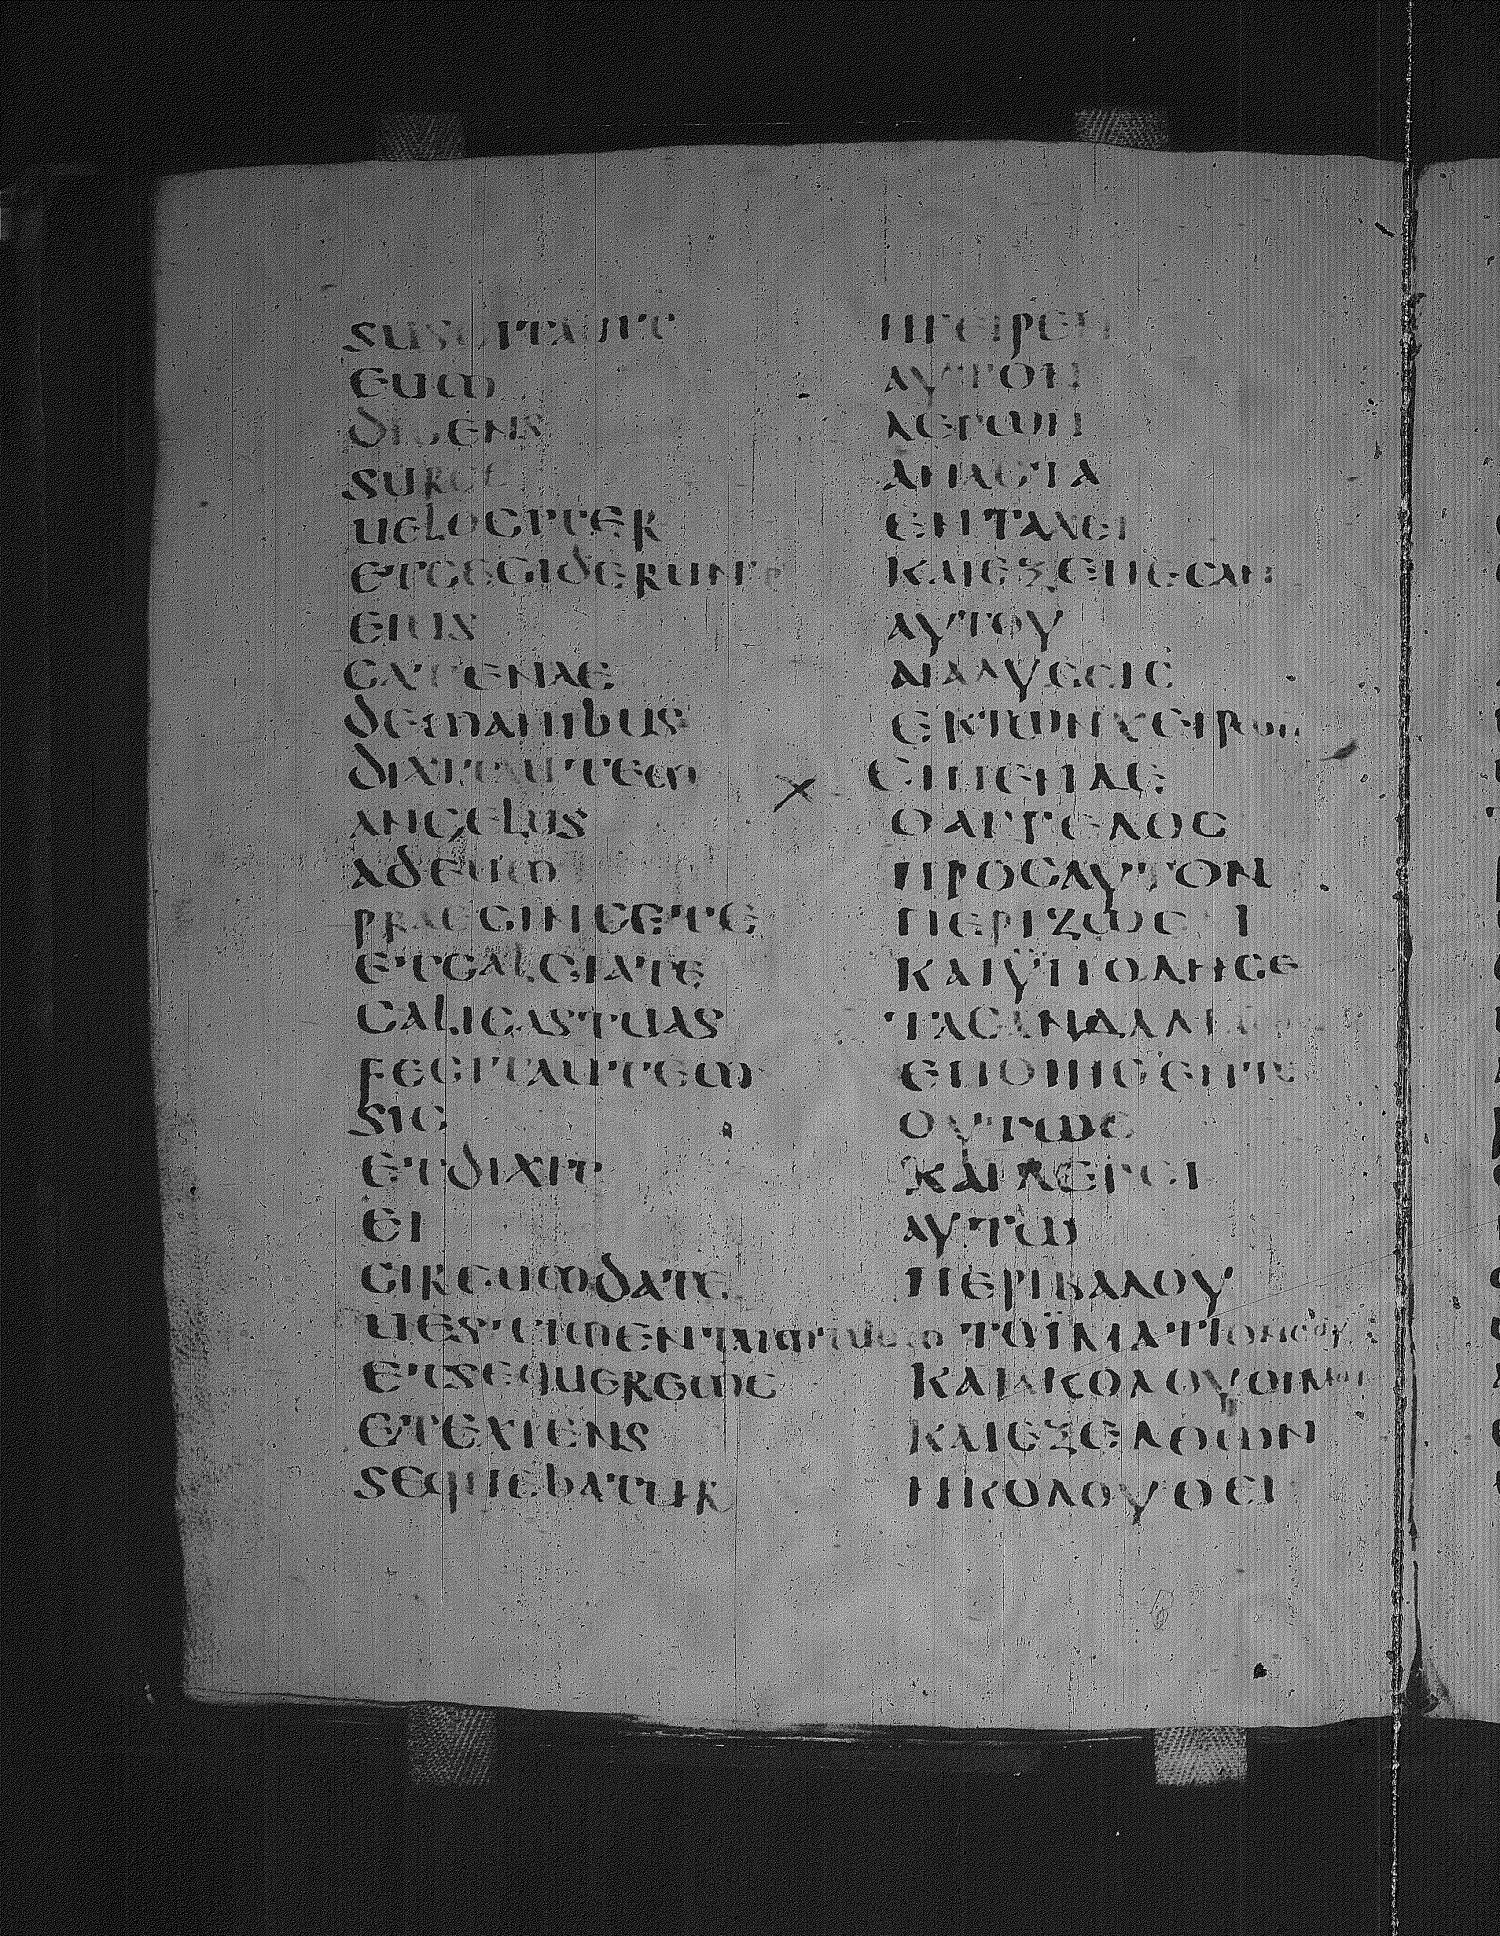 SUSCITAUIT
EUM
DICENS
SURGE
UELOCITER
ETCECIDERUNT
EIUS
CATENAE
DEMANIBUS
DIXITAUTEM
ANGELUS
ADEUM
PRAECINGETE
ETCALCIATE
CALIGASTUAS
FECITAUTEM
SIC
ETDIXIT
EI
CIRCUMDATE
ETSEQUEREME
ETEXIENS
SEQUEBATUR
ΗΓΕΙΡΕΝ
ΑΥΤΟΝ
ΛΕΓΩΝ
ΑΝΑСΤΑ
ΕΝΤΑΧΕΙ
ΚΑΙΕΞΕΠΕСΑΝ
ΑΥΤΟΥ
ΑΙΑΛΥСΕΙС
ΕΚΤΩΝΧΕΙΡΩΝ
ΕΙΠΕΝΔΕ
ΟΑΓΓΕΛΟС
ΠΡΟСΑΥΤΟΝ
ΠΕΡΙΖΩСΕ
ΚΑΙΫΠΟΔΗСΕ
ΤΑСΑΝΔΑΛΙΑ
ΕΠΟΙΗСΕΝΔΕ
ΟΥΤΩС
ΚΑΙΛΕΓΕΙ
ΑΥΤΩ
ΠΕΡΙΒΑΛΟΥ
ΤΟΪΜΑΤΙΟΝСΟΥ
ΚΑΙΑΚΟΛΟΥΘΙΜΟΙ
ΚΑΙΕΞΕΛΘΩΝ
ΗΚΟΛΟΥΘΕΙ